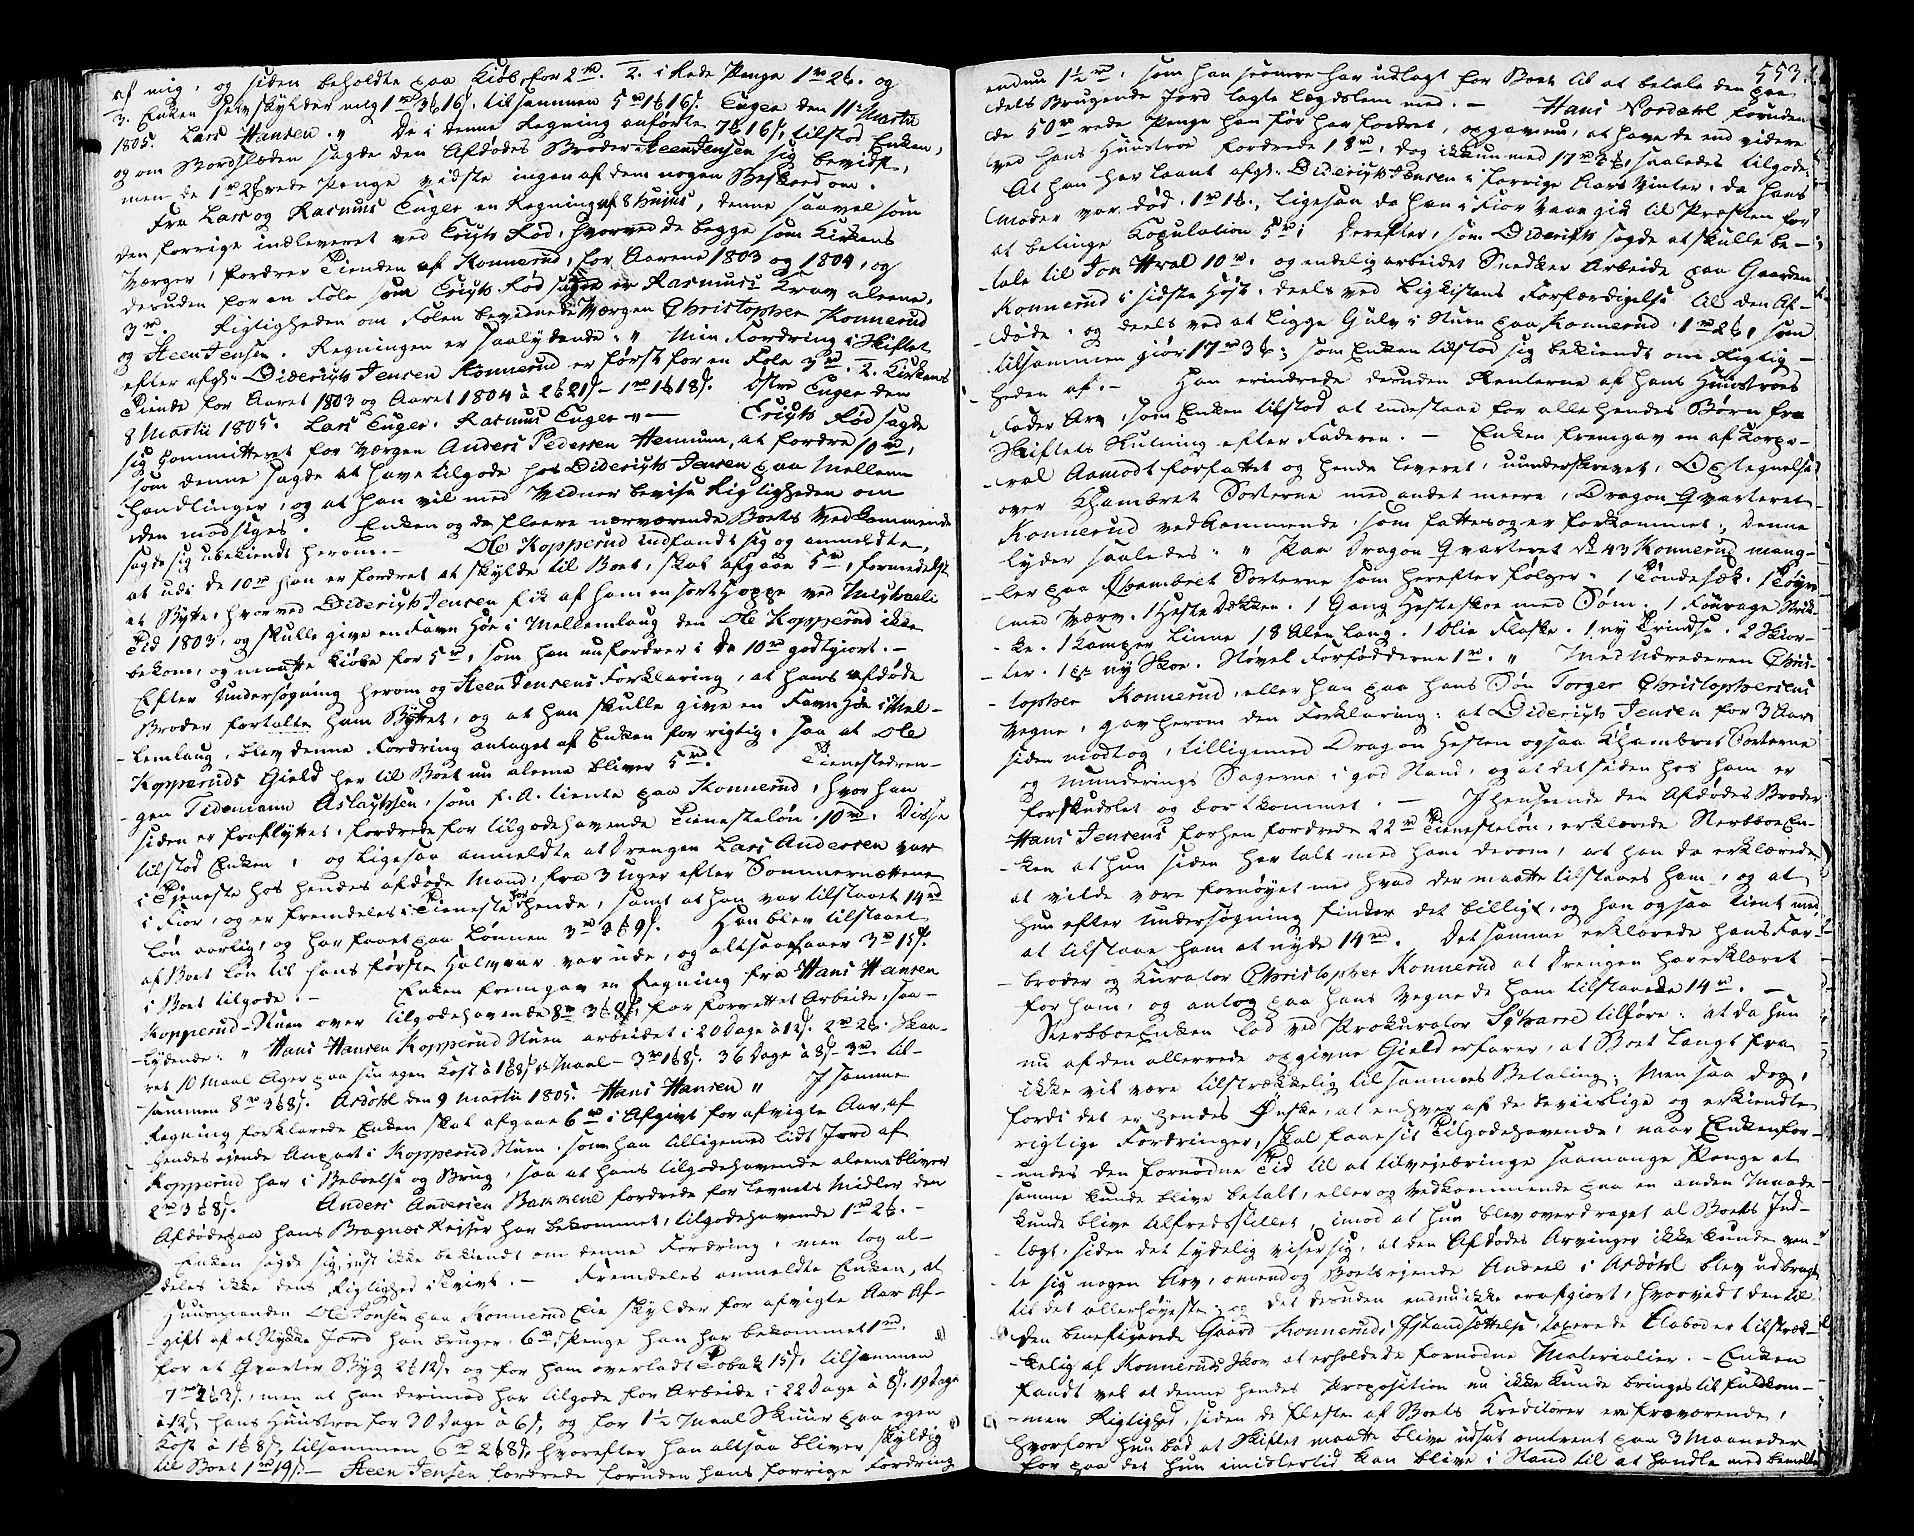 af mig, og siden beholdte paa Kiøb for 2 rd. 2. i Rede Penge 1 rd 2 ß. og
3. Enken selv skylder mig 1 rd 3 ß 16 s. tilsammen 5 rd 1 ß 16 s. Euger den 11te Martii
1805. Lars Hansen. " De i denne Regning anførte 7 ß 16 s, tilstod Enken,
og om Bordslæden sagde den Afdødes Broder Steen Jensen sig bevidst,
men de 1 rd 2 ß rede Penge vidste ingen af dem nogen Beskeed om.
Fra Lars og Rasmus Euger en Regning af 8 hujus, denne saavel som
den forrige indleveret ved Erich Rød, hvorved de begge som Kirkens
Værger, fordrer Tienden af Konnerud, for Aarene 1803 og 1804, og
desuden for en Fole som Erich Rød sagde er Rasmus's Krav aleene,
3 rd. Rigtigheden om Folen bevidnede Værgen Christopher Konnerud
og Steen Jensen. Regningen er saalydende: " Min Fordring i Skiftet
efter afgl. Diderich Jensen Konnerud er først for en Fole 3 rd. 2. Kirkens
Tiende for Aaret 1803 og Aaret 1804 à 2 ß 21 s - 1 rd 1 ß 18 s. Østre Euger den
8 Martii 1805. Lars Euger. Rasmus Euger " — Erich Rød sagde
sig committeret for Værgen Anders Pedersen Hennum, at fordre 10 rd,
som denne sagde at have tilgode hos Diderich Jensen paa Mellem
handlinger, og at han vil med Vidner bevise Rigtigheden om
den modsiges. Enken og de fleere nærværende Boets Vedkommende
sagde sig ubekiendt herom. — Ole Kopperud indfandt sig og anmeldte,
at udi de 10 rd han er fordret at skylde til Boet, skal afgaae 5 rd, formedelst
et Bytte, hvorved Diderich Jensen fik af ham en sort Hoppe ved Michaeli
Tid 1803, og skulle give en Favn Høe i Mellemlaug den Ole Kopperud ikke
bekom, og maatte kiøbe for 5 rd, som han nu fordrer i de 10 rd godtgiort. —
Efter Undersøgning herom og Steen Jensens Forklaring, at hans afdøde
Broder fortalte ham Byttet, og at han skulle give en Favn Høe i Mel-
lemlaug, blev denne Fordring antaget af Enken for rigtig, saa at Ole
Kopperuds Gield her til Boet nu aleene bliver 5 rd. Tienestedren-
gen Tidemann Aslachsen, som f. A. tiente paa Konnerud, hvor han
siden er fraflyttet, fordrede for tilgodehavende Tienesteløn 10 rd. Disse
tilstod Enken, og ligesaa anmeldte at Drengen Lars Andersen var
i Tjeneste hos hendes afdøde Mand, fra 3 Uger efter Sommernættene
i Fior, og er fremdeles i Tieneste hos hende, samt at han var tilstaaet 14 rd
Løn aarlig, og har faaet paa Lønnen 3 rd 3 ß 9 s. Han blev tilstaaet
af Boet Løn til hans første Halvaar var ude, og altsaa faaer 3 rd 15 s.
i Boet tilgode. — Enken fremgav en Regning fra Hans Hansen
Kopperud-Stuen over tilgodehavende 8 rd 3 ß 8 s, for forrettet Arbeide, saa-
lydende: " Hans Hansen Kopperud Stuen arbeidet i 20 Dage à 12 s. 2 rd 2 ß. Skaa-
ret 10 Maal Ager paa sin egen Kost à 1 ß 8 s Maal - 3 rd 1 ß 8 s. 36 Dage à 8 s - 3 rd. til-
sammen 8 rd 3 ß 8 s. Asdøhl den 9 Martii 1805. Hans Hansen " I samme
Regning forklarede Enken skal afgaae 6 rd i Afgivt for afvigte Aar, af
hendes eiende Anpart i Kopperud Stuen, som han tilligemed lidt Jord af
Kopperud har i Beboelse og Brug, saa at hans tilgodehavende aleene bliver
2 rd 3 ß 8 s. Anders Andersen Bammene fordrede for Levnets Midler den
Afdøde paa hans Bragnes Rejser har bekommet, tilgodehavende 1 rd 2 ß. —
Enken sagde sig, just ikke bekiendt om denne Fordring, men tog al-
deles ikke dens Rigtighed i Tvivl. — Fremdeles anmeldte Enken, at
Huusmanden Ole Jonsen paa Konnerud Eie skylder for afvigte Aar Af-
gift af et Stykke Jord han bruger, 6 rd, Penge han har bekommet 1 rd.
for et Qvarter Byg 2 ß 12 s, og for ham overladt Tobak 15 s, tilsammen
7 rd 2 ß 3 s, men at han derimod har tilgode for Arbeide i 22 Dage à 8 s. 19 Dage
à 12 s, hans Huustroe for 30 Dage à 6 s, og for 1½ Maal Skuur paa egen
Kost à 1 ß 8 s, tilsammen 6 rd 2 ß 8 s, hvorefter han altsaa bliver skyldig
til Boet 1 rd 19 s. — Steen Jensen fordrede foruden hans forrige Fordring
553.
endnu 1½ rd, som han seenere har udlagt for Boet til at betale den paa
dels Brugende Jord lagte Lægdslem med. — Hans Nordahl foruden
de 50 rd rede Penge han før har fordret, opgav nu, at have de end videre
ved hans Huustroe fordrede 18 rd, dog ikkun med 17 rd 3 ß, saaledes tilgode:
At han har laant afgl. Diderich Jensen i forrige Aars Vinter, da hans
Moder var død, 1 rd 1 ß, ligesaa da han i Fior Vaar gik til Præsten for
at betinge Kopulation 5 rd; derefter, som Diderich sagde at skulle be-
tale til Jon Hval 10 rd, og endelig arbeidet Snedker Arbeide paa Gaarden
Konnerud i sidste Høst, deels ved Ligkistens Forfærdigelse til den Af-
døde, og deels ved at ligge Gulv i Stuen paa Konnerud, 1 rd 2 ß, som
tilsammen giør 17 rd 3 ß; som Enken tilstod sig bekiendt om Rigtig-
heden af. — Han erindrede desuden Renterne af hans Huustroes
Fader Arv, som Enken tilstod at indestaae for alle hendes Børn fra
Skiftets Slutning efter Faderen. — Enken fremgav en af Korpo-
ral Aamodt forfattet og hende leveret, uunderskrevet, Optegnelse
over Chambret Sorterne med andet meere, Dragon Qvarteret
Konnerud vedkommende, som fattes og er forkommet; denne
lyder saaledes: " Paa Dragon Qvarteret No 43 Konnerud mang-
ler paa Chambret Sorterne som herefter følger: 1 Tøndesæk. 1 Tøyre
med Værv. 1 Heste Dækken. 1 Gang Hesteskoe med Søm. 1 Fourage Strik-
ke. 1 Kamper Linne 18 Alen lang. 1 Olie Flaske. 1 ny Trindse. 2 Skior-
ter. 1 p. ny Skoe. Støvel Forfødderne 1 rd. " Medudrederen Chris-
topher Konnerud, eller han paa hans Søn Torger Christophersens
Vegne, gav herom den Forklaring: at Diderich Jensen for 3 Aar
siden modtog, tilligemed Dragon Hesten ogsaa Chambret Sorterne
og Munderings Sagerne i god Stand, og at det siden hos ham er
forskudslet og bortkommet. — I henseende den Afdødes Broder
Hans Jensens forhen fordrede 22 rd Tienesteløn, erklærede Sterbboe En-
ken at hun siden har talt med ham derom, at han da erklærede
at vilde være fornøyet med hvad der maatte tilstaaes ham, og at
hun efter Undersøgning finder det billigt, og han ogsaa tient med,
at tilstaae ham at nyde 14 rd. Det samme erklærede hans Far-
broder og Kurator Christopher Konnerud at Drengen har erklæret
for ham, og antog paa hans Vegne de ham tilstaaede 14 rd. —
Sterbboe Enken lod ved Prokurator Sylvarre tilføre: at da hun
nu af den allerrede opgivne Gield erfarer, at Boet langt fra
ikke vil være tilstrækkelig til sammes Betaling; Men saa dog,
fordi det er hendes Ønske, at enhver af de beviislige og erkiendte
rigtige Fordringer, skal faae sit Tilgodehavende, naar Enken for-
undes den fornødne Tid til at tilvejebringe saamange Penge at
samme kunde blive betalt, eller og Vedkommende paa en anden Maade
kunde blive tilfredsstillet, imod at hun blev overdraget al Boets Ind-
tægt, siden det tydelig viser sig, at den Afdødes Arvinger ikke kunde ven-
te sig nogen Arv, omendog Boets ejende Andeel i Asdøhl blev udbragt
til det allerhøyeste, og det desuden endnu ikke er afgiort, hvorvidt den til
den benefigerede Gaard Konneruds Istandsættelse taxerede Aabod er tilstræk-
kelig af Konneruds Skov at erholde de fornødne Materialier. — Enken
fandt vel at denne hendes Proposition nu ikke kunde bringes til Fuldkom-
men Rigtighed, siden de fleste af Boets Kreditorer ere fraværende,
hvorfore hun bad at Skiftet maatte blive udsat omtrent paa 3 Maaneder
for paa det hun imidlertid kan blive i Stand til at handle med bemeldte